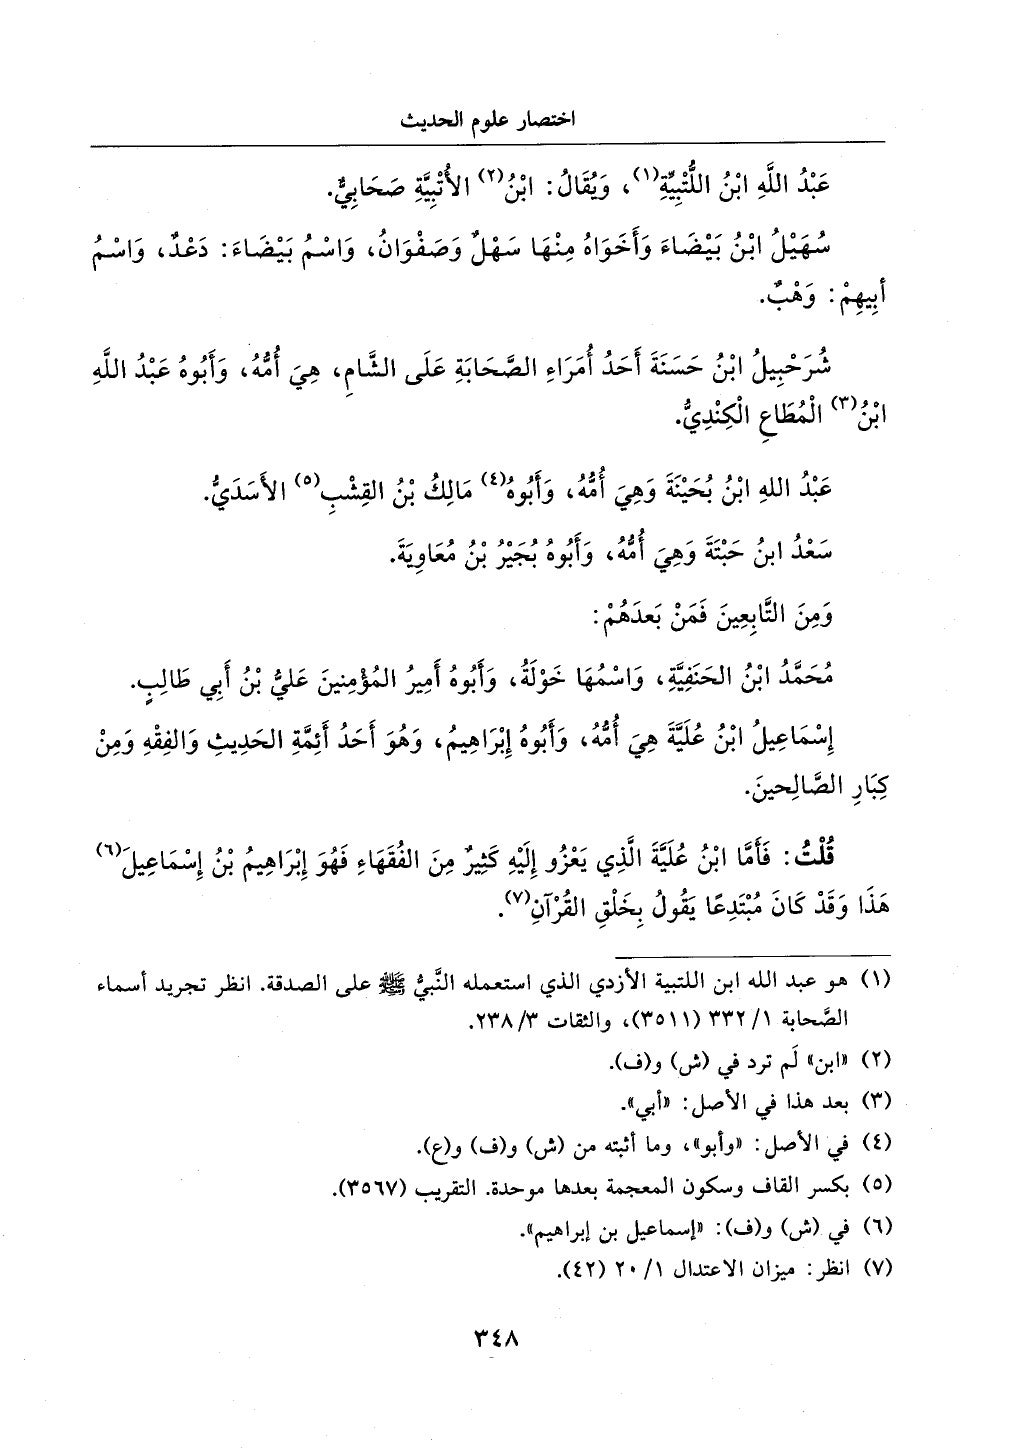 اختصار علوم الحديث
عَبْدُ اللَّهِ ابْنُ اللُّتْبِيَّةِ(١)، وَيُقَالُ: ابْنُ(٢) الأُتْبِيَّةِ صَحَابِيٌّ.
سُهَيْلُ ابْنُ بَيْضَاءَ وَأَخَوَاهُ مِنْهَا سَهْلٌ وَصَفْوَانُ، وَاسْمُ بَيْضَاءَ: دَعْدٌ، وَاسْمُ
أَبِيهِمْ: وَهْبٌ.
شُرَحْبِيلُ ابْنُ حَسَنَةَ أَحَدُ أُمَرَاءِ الصَّحَابَةِ عَلَى الشَّامِ، هِيَ أُمُّهُ، وَأَبُوهُ عَبْدُ اللَّهِ
ابْنُ(٣) الْمُطَاعِ الْكِنْدِيُّ.
عَبْدُ اللهِ ابْنُ بُحَيْنَةَ وَهِيَ أُمُّهُ، وَأَبُوهُ(٤) مَالِكُ بْنُ القِشْبِ(٥) الأَسَدَيُّ.
سَعْدُ ابنُ حَبْتَةَ وَهِيَ أُمُّهُ، وَأَبُوهُ بُجَيْرُ بْنُ مُعَاوِيَةَ.
وَمِنَ التَّابِعِينَ فَمَنْ بَعدَهُمْ:
مُحَمَّدُ ابْنُ الحَنَفِيَّةِ، وَاسْمُهَا خَوْلَةُ، وَأَبُوهُ أَمِيرُ المُؤْمِنينَ عَليُّ بْنُ أَبِي طَالِبٍ.
إِسْمَاعِيلُ ابْنُ عُلَيَّةَ هِيَ أُمُّهُ، وَأَبُوهُ إِبْرَاهِيمُ، وَهُوَ أَحَدُ أَئِمَّةِ الحَدِيثِ وَالفِقْهِ وَمِنْ
كِبَارِ الصَّالِحينَ.
قُلْتُ: فَأَمَّا ابْنُ عُلَيَّةَ الَّذِي يَعْزُو إِلَيْهِ كَثِيرٌ مِنَ الفُقَهَاءِ فَهُوَ إِبْرَاهِيمُ بْنُ إِسْمَاعِيلَ(٦)
هَذَا وَقَدْ كَانَ مُبْتَدِعًا يَقُولُ بِخَلْقِ القُرْآنِ(٧).
(١) هو عبد الله ابن اللتبية الأزدي الذي استعمله النَّبيُّ ﷺ على الصدقة. انظر تجريد أسماء
الصَّحابة ١/ ٣٣٢ (٣٥١١)، والثقات ٣/ ٢٣٨.
(٢) «ابن» لَم ترد في (ش) و(ف).
(٣) بعد هذا في الأصل: «أبي».
(٤) في الأصل: «وأبو»، وما أثبته من (ش) و(ف) و(ع).
(٥) بكسر القاف وسكون المعجمة بعدها موحدة. التقريب (٣٥٦٧).
(٦) في (ش) و(ف): «إسماعيل بن إبراهيم».
(٧) انظر: ميزان الاعتدال ١/ ٢٠ (٤٢).
٣٤٨